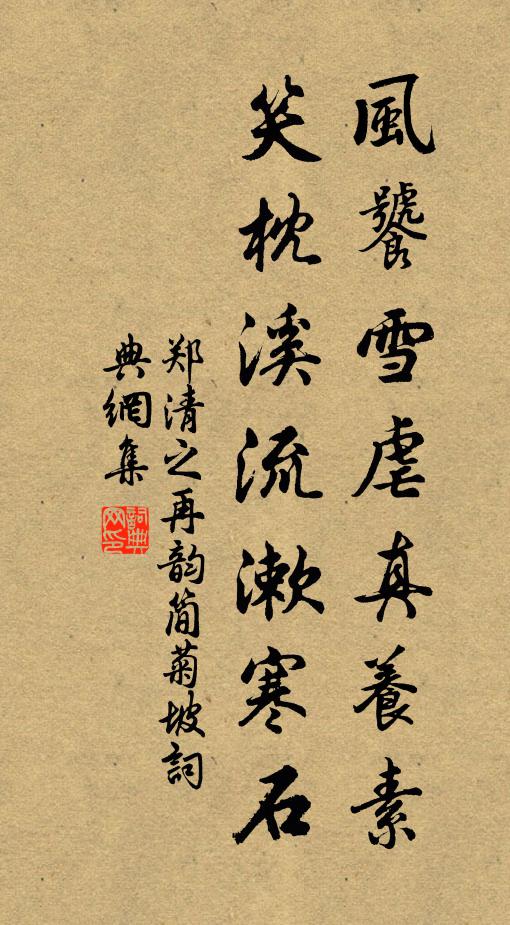 風饕雪虐真養素
笑枕溪流漱寒石
郑清之再韵简菊坡詞
典網集
詞典網印